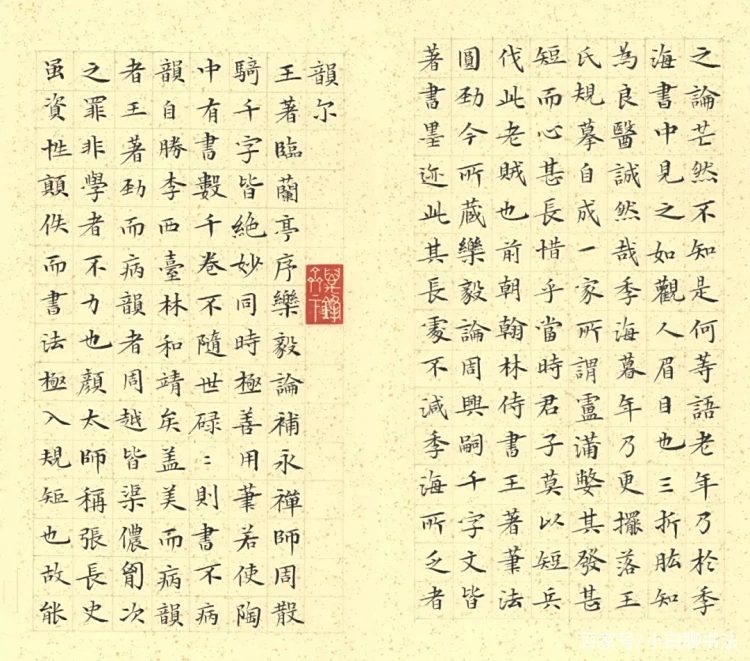 之論芒然不知是何等語老年乃於季
海書中見之如觀人眉目也三折肱知
為良醫誠然哉季海暮年乃更擺落王
氏規摹自成一家所謂盧滿嫳其發甚
短而心甚長惜乎當時君子莫以短兵
伐此老賊也前朝翰林侍書王著筆法
圓勁今所藏樂毅論周興嗣千字文皆
著書墨迹此其長處不減季海所乏者
韻尔
王著臨蘭亭序樂毅論補永禪師周散
騎千字皆絕妙同時極善用筆若使陶
中有書數千卷不隨世碌々則書不病
韻自勝李西臺林和靖矣盖美而病韻
者王著勁而病韻者周越皆渠儂胷次
之罪非學者不力也顏太師稱張長史
虽資性顛佚而書法極入規矩也故能